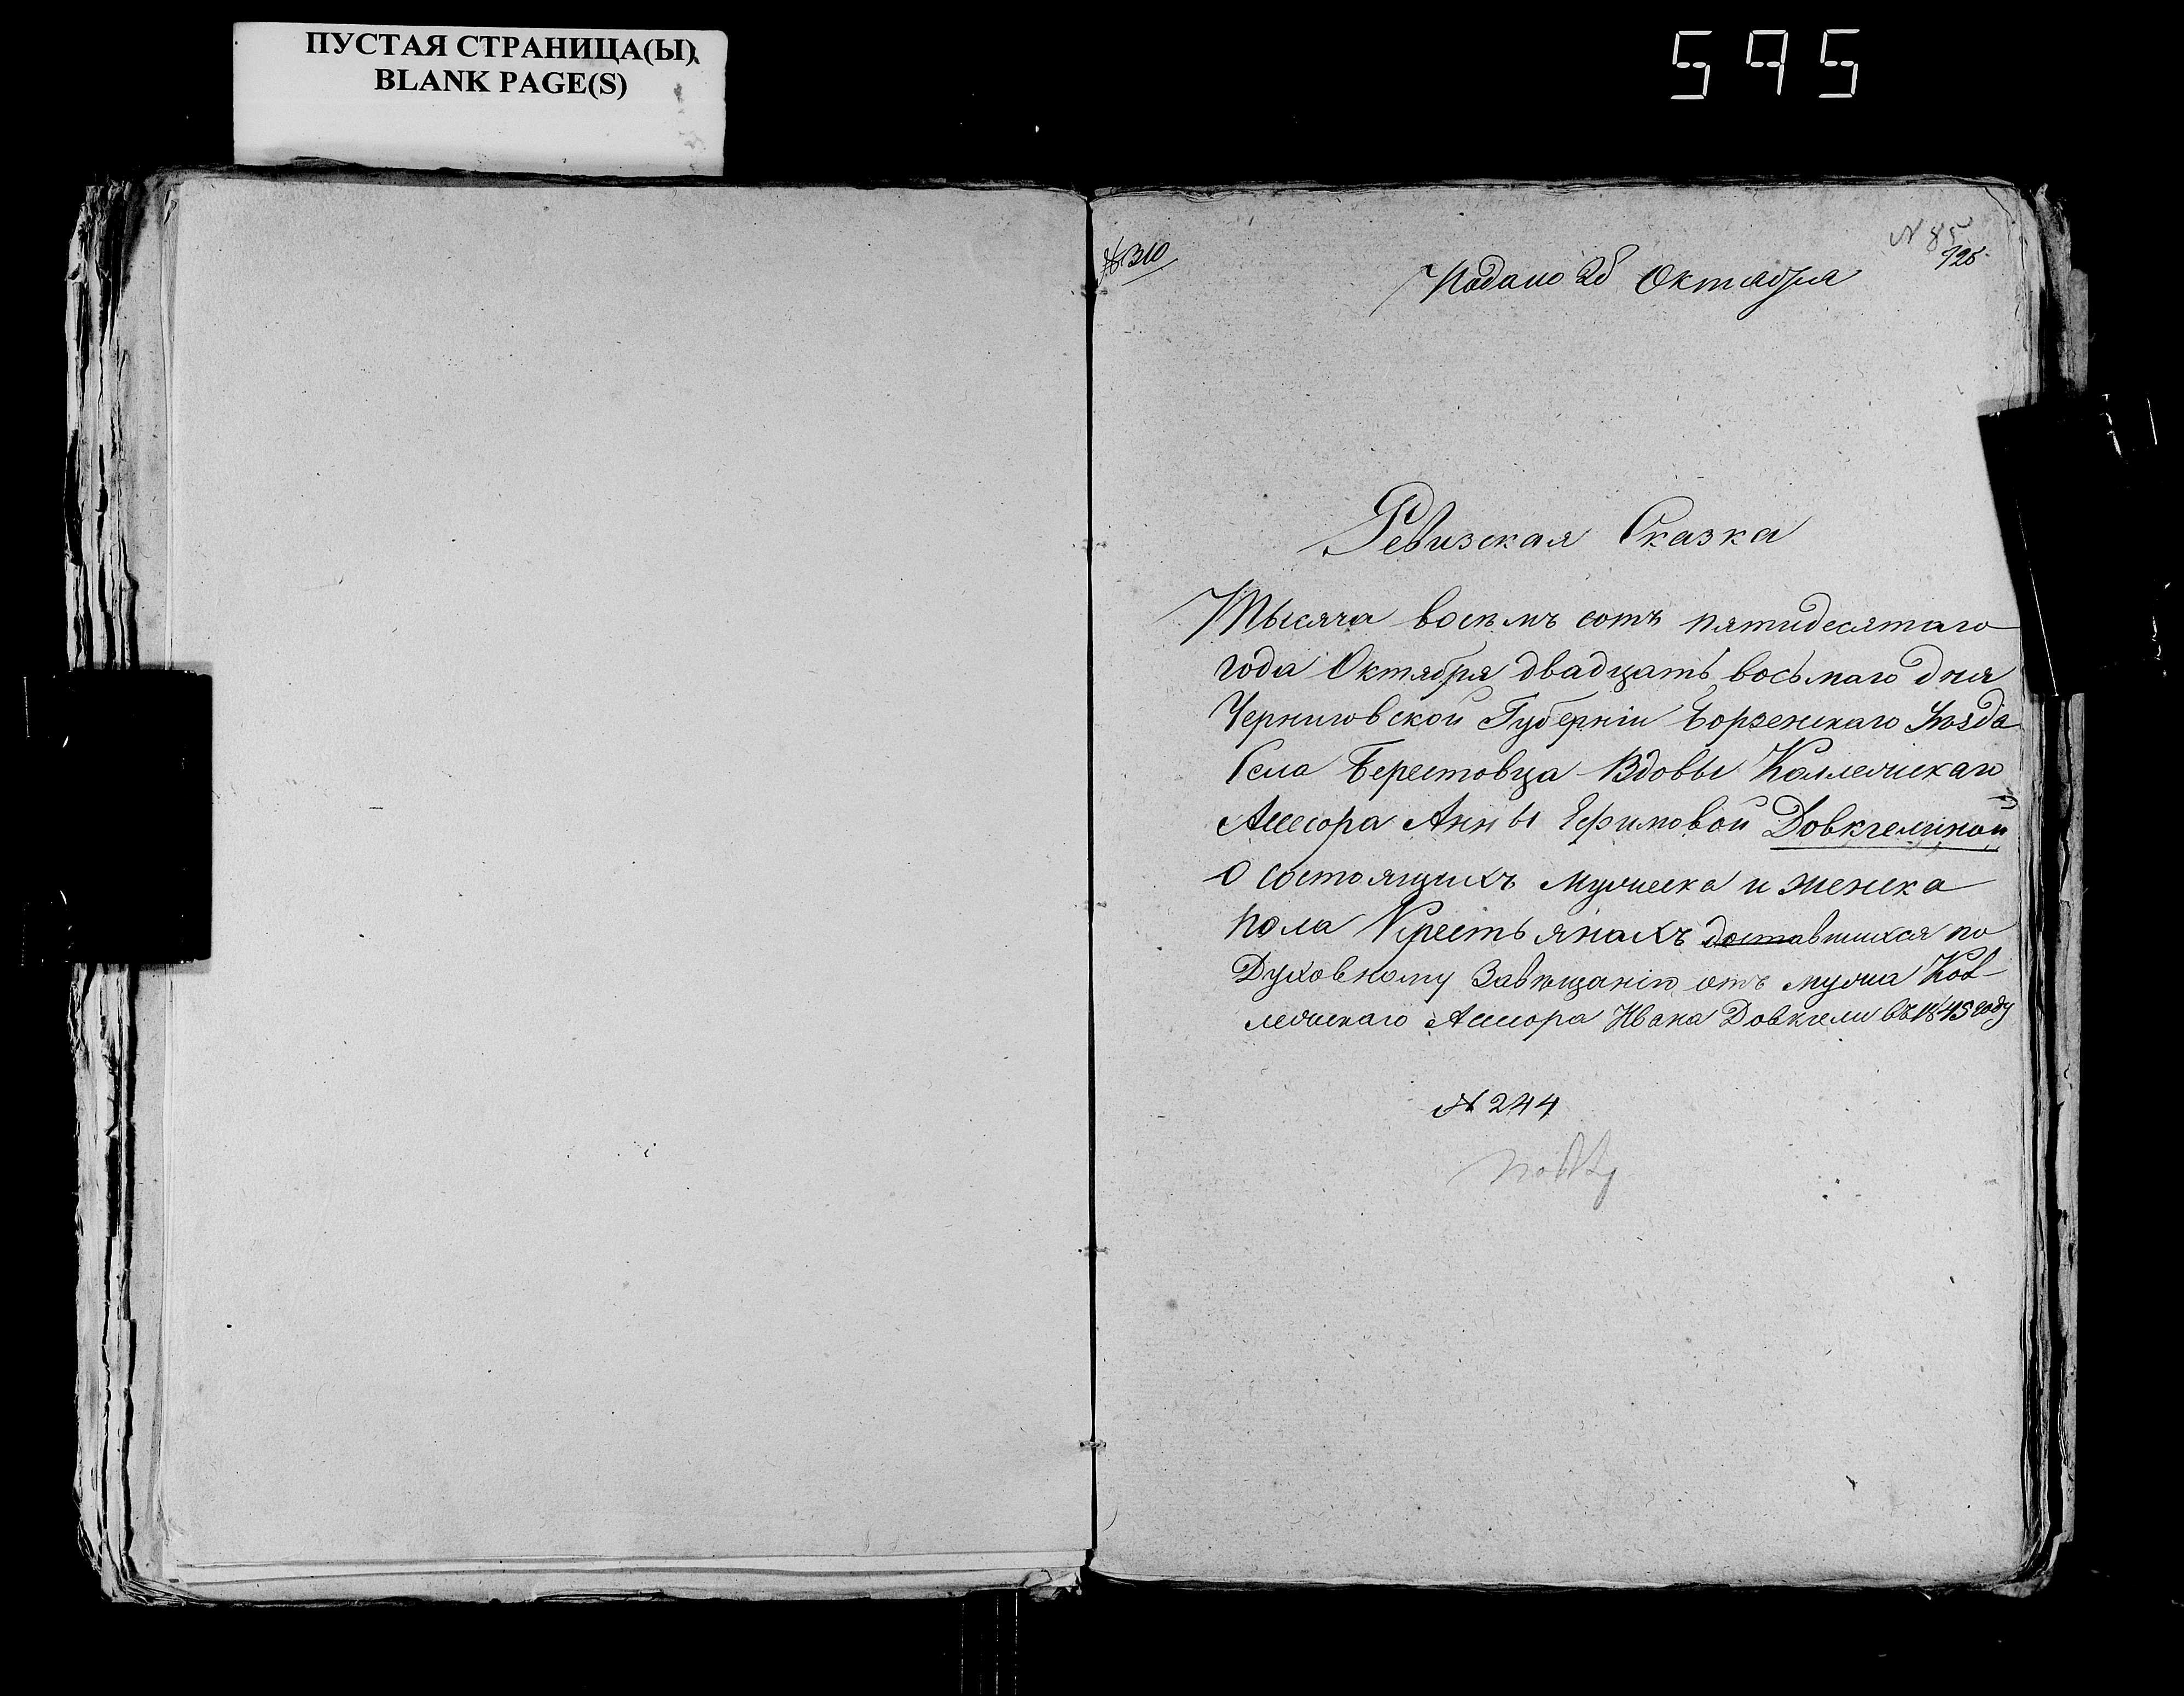 ПУСТАЯ СТРАНИЦА(Ы)
BLANK PAGE(S)
595
№ 310
N 85
Подано 28 Октября
Ревизская Сказка
Тысяча восемъ сотъ пятидесятаго
года Октября двадцать восьмаго дня
Черниговской Губерніи Борзенскаго Уѣзда
Села Берестовца Вдовы Коллежскаго
Ассесора Анны Ефимовой Довкгелиной
О состоящихъ мужеска и женска
пола Крестьянахъ доставшихся по
Духовному Завѣщанію отъ мужа Кол-
лежскаго Ассесора Ивана Довкгели въ 1845 году
№ 244